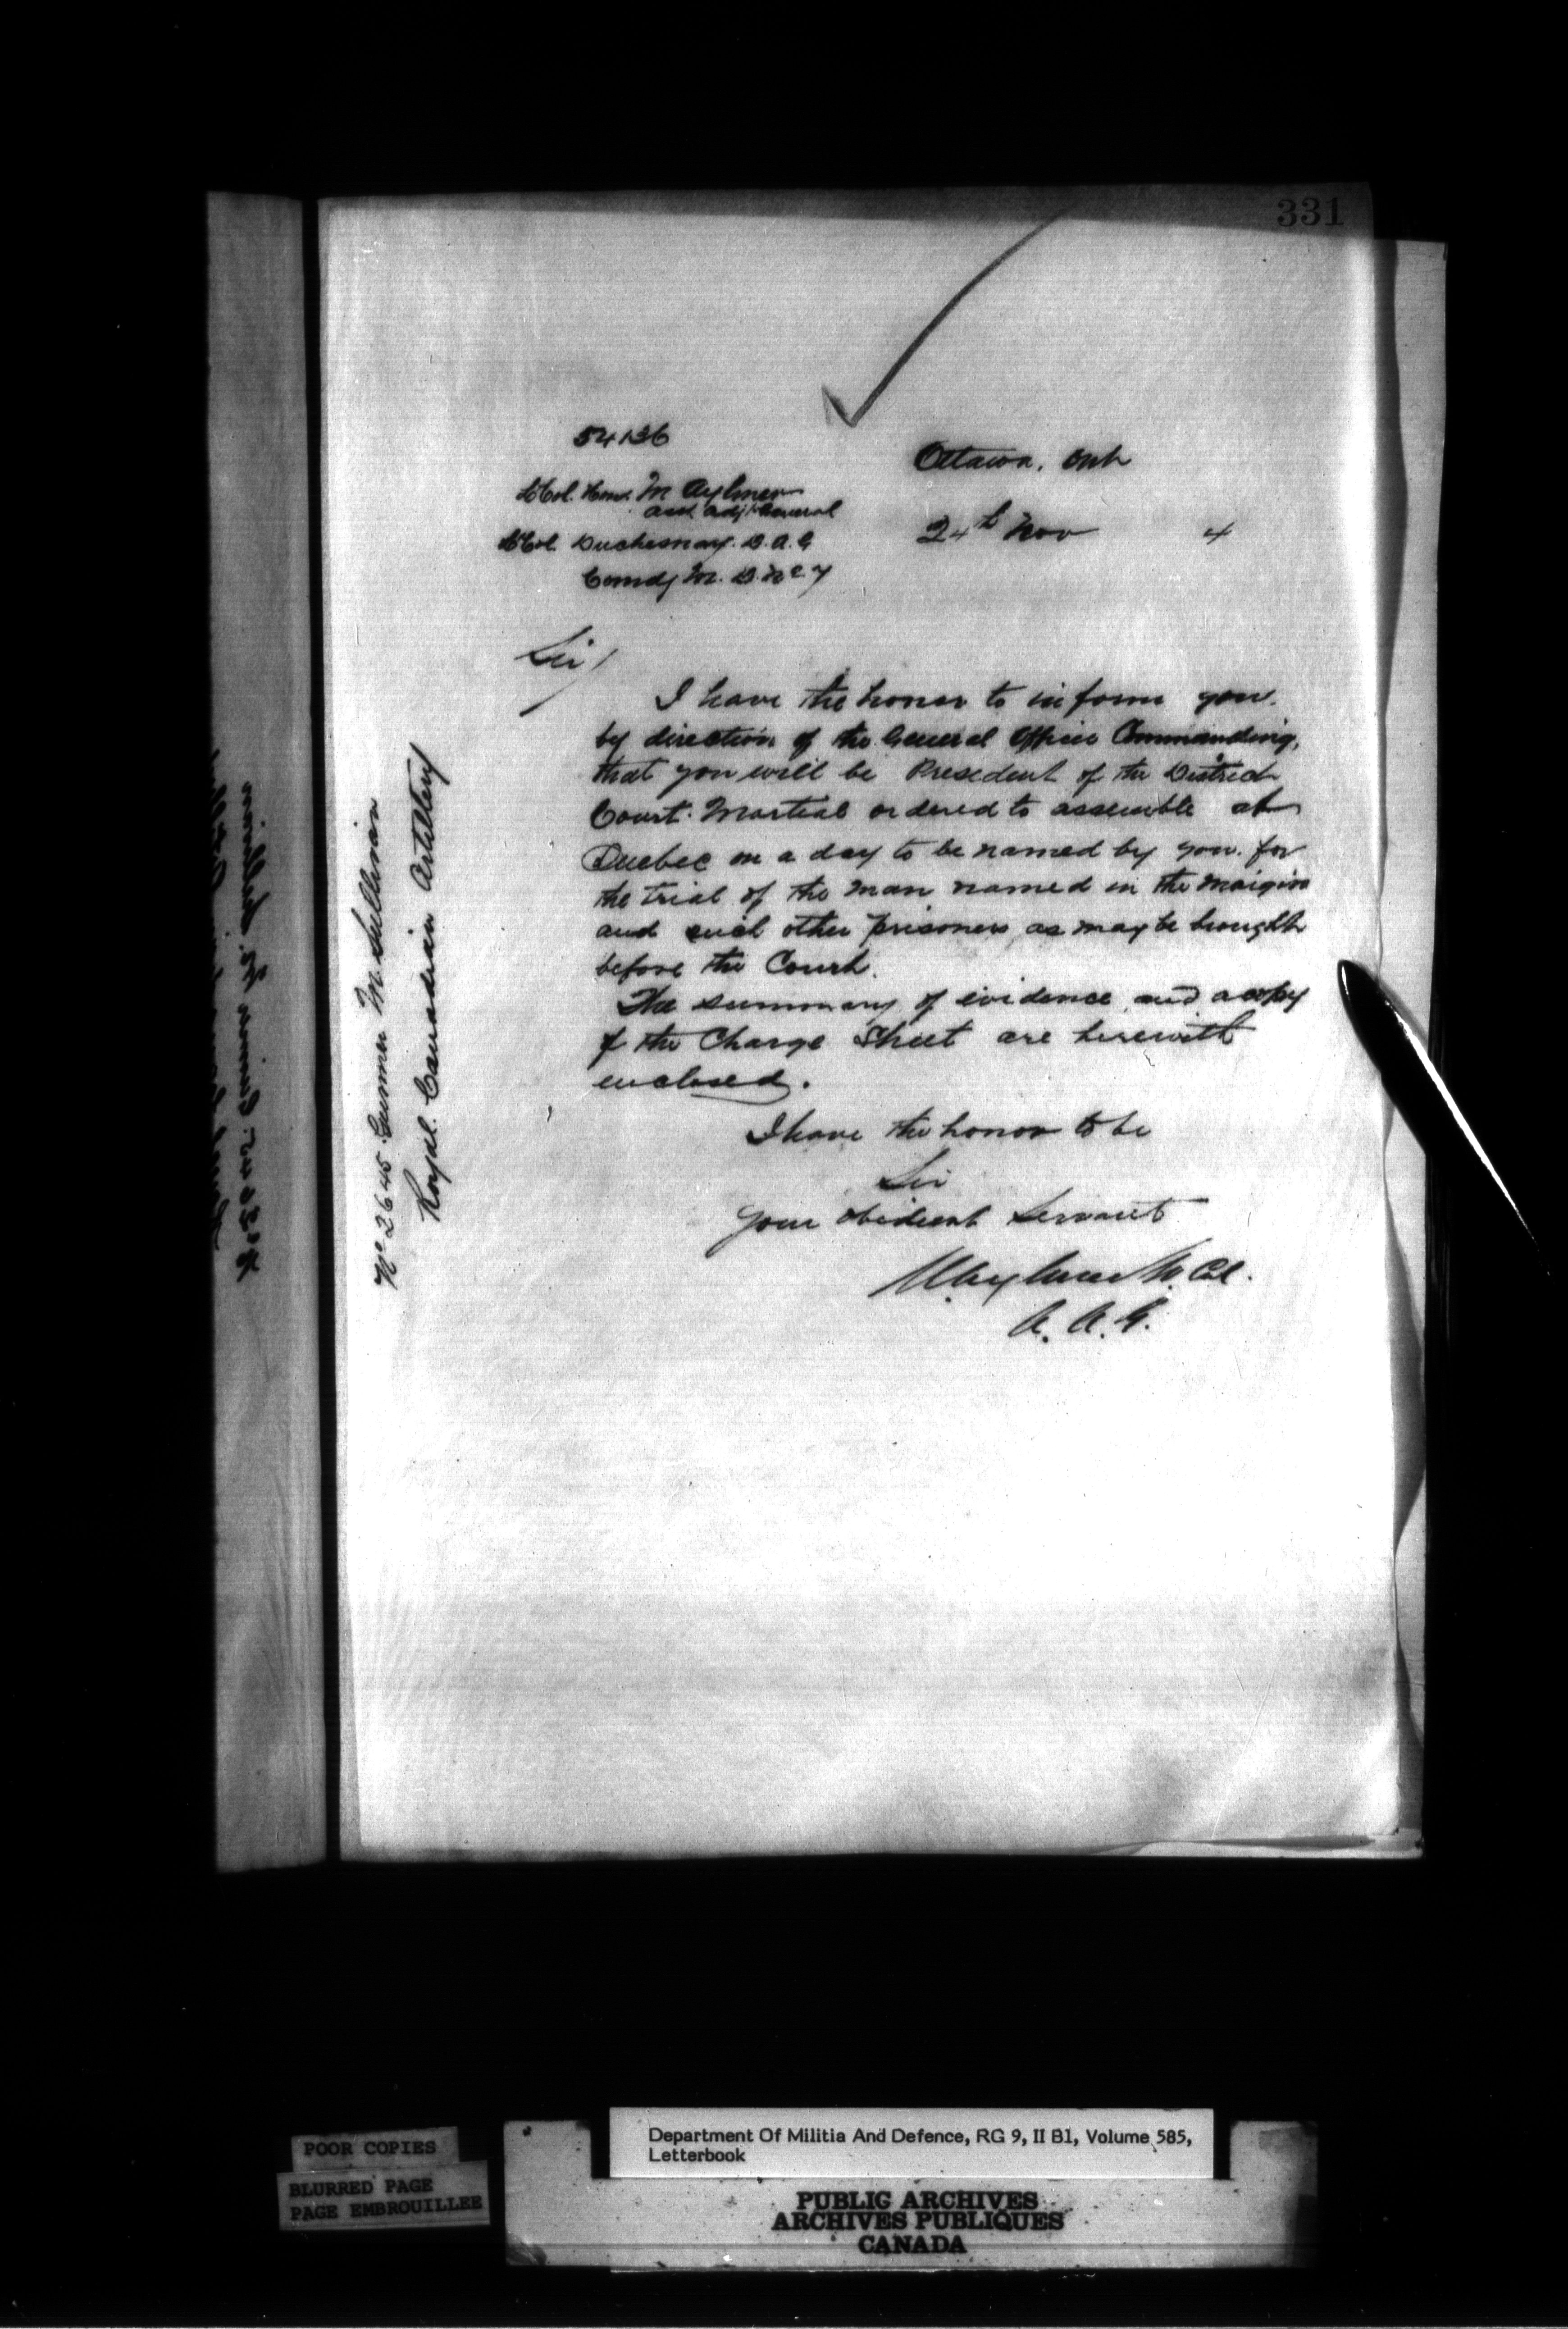 331
54136
Ottawa, Ont
Lt Col. Honl. M Aylmer
asst adjt General
24th Nov 4
Lt Col Duchesnay. D.A.G
Comdg M. D. No 7
Sir/
I have the honor to inform you.
by direction of the General Officer Commanding,
that you will be President of the District
Court. Martial ordered to assemble at
Quebec on a day to be named by you. for
the trial of the man named in the margin
and such other prisoners as may be brought
before the Court.
The summary of evidence and a copy
of the Charge Sheet are herewith
enclosed.
I have the honor to be
Sir
Your obedient Servant
MAylmer Lt. Col.
A. A. G.
No 2645 Gunner M. Sullivan
Royal Canadian Artillery
POOR COPIES
BLURRED PAGE
PAGE EMBROUILLEE
Department Of Militia And Defence, RG 9, II B1, Volume 585,
Letterbook
PUBLIC ARCHIVES
ARCHIVES PUBLIQUES
CANADA